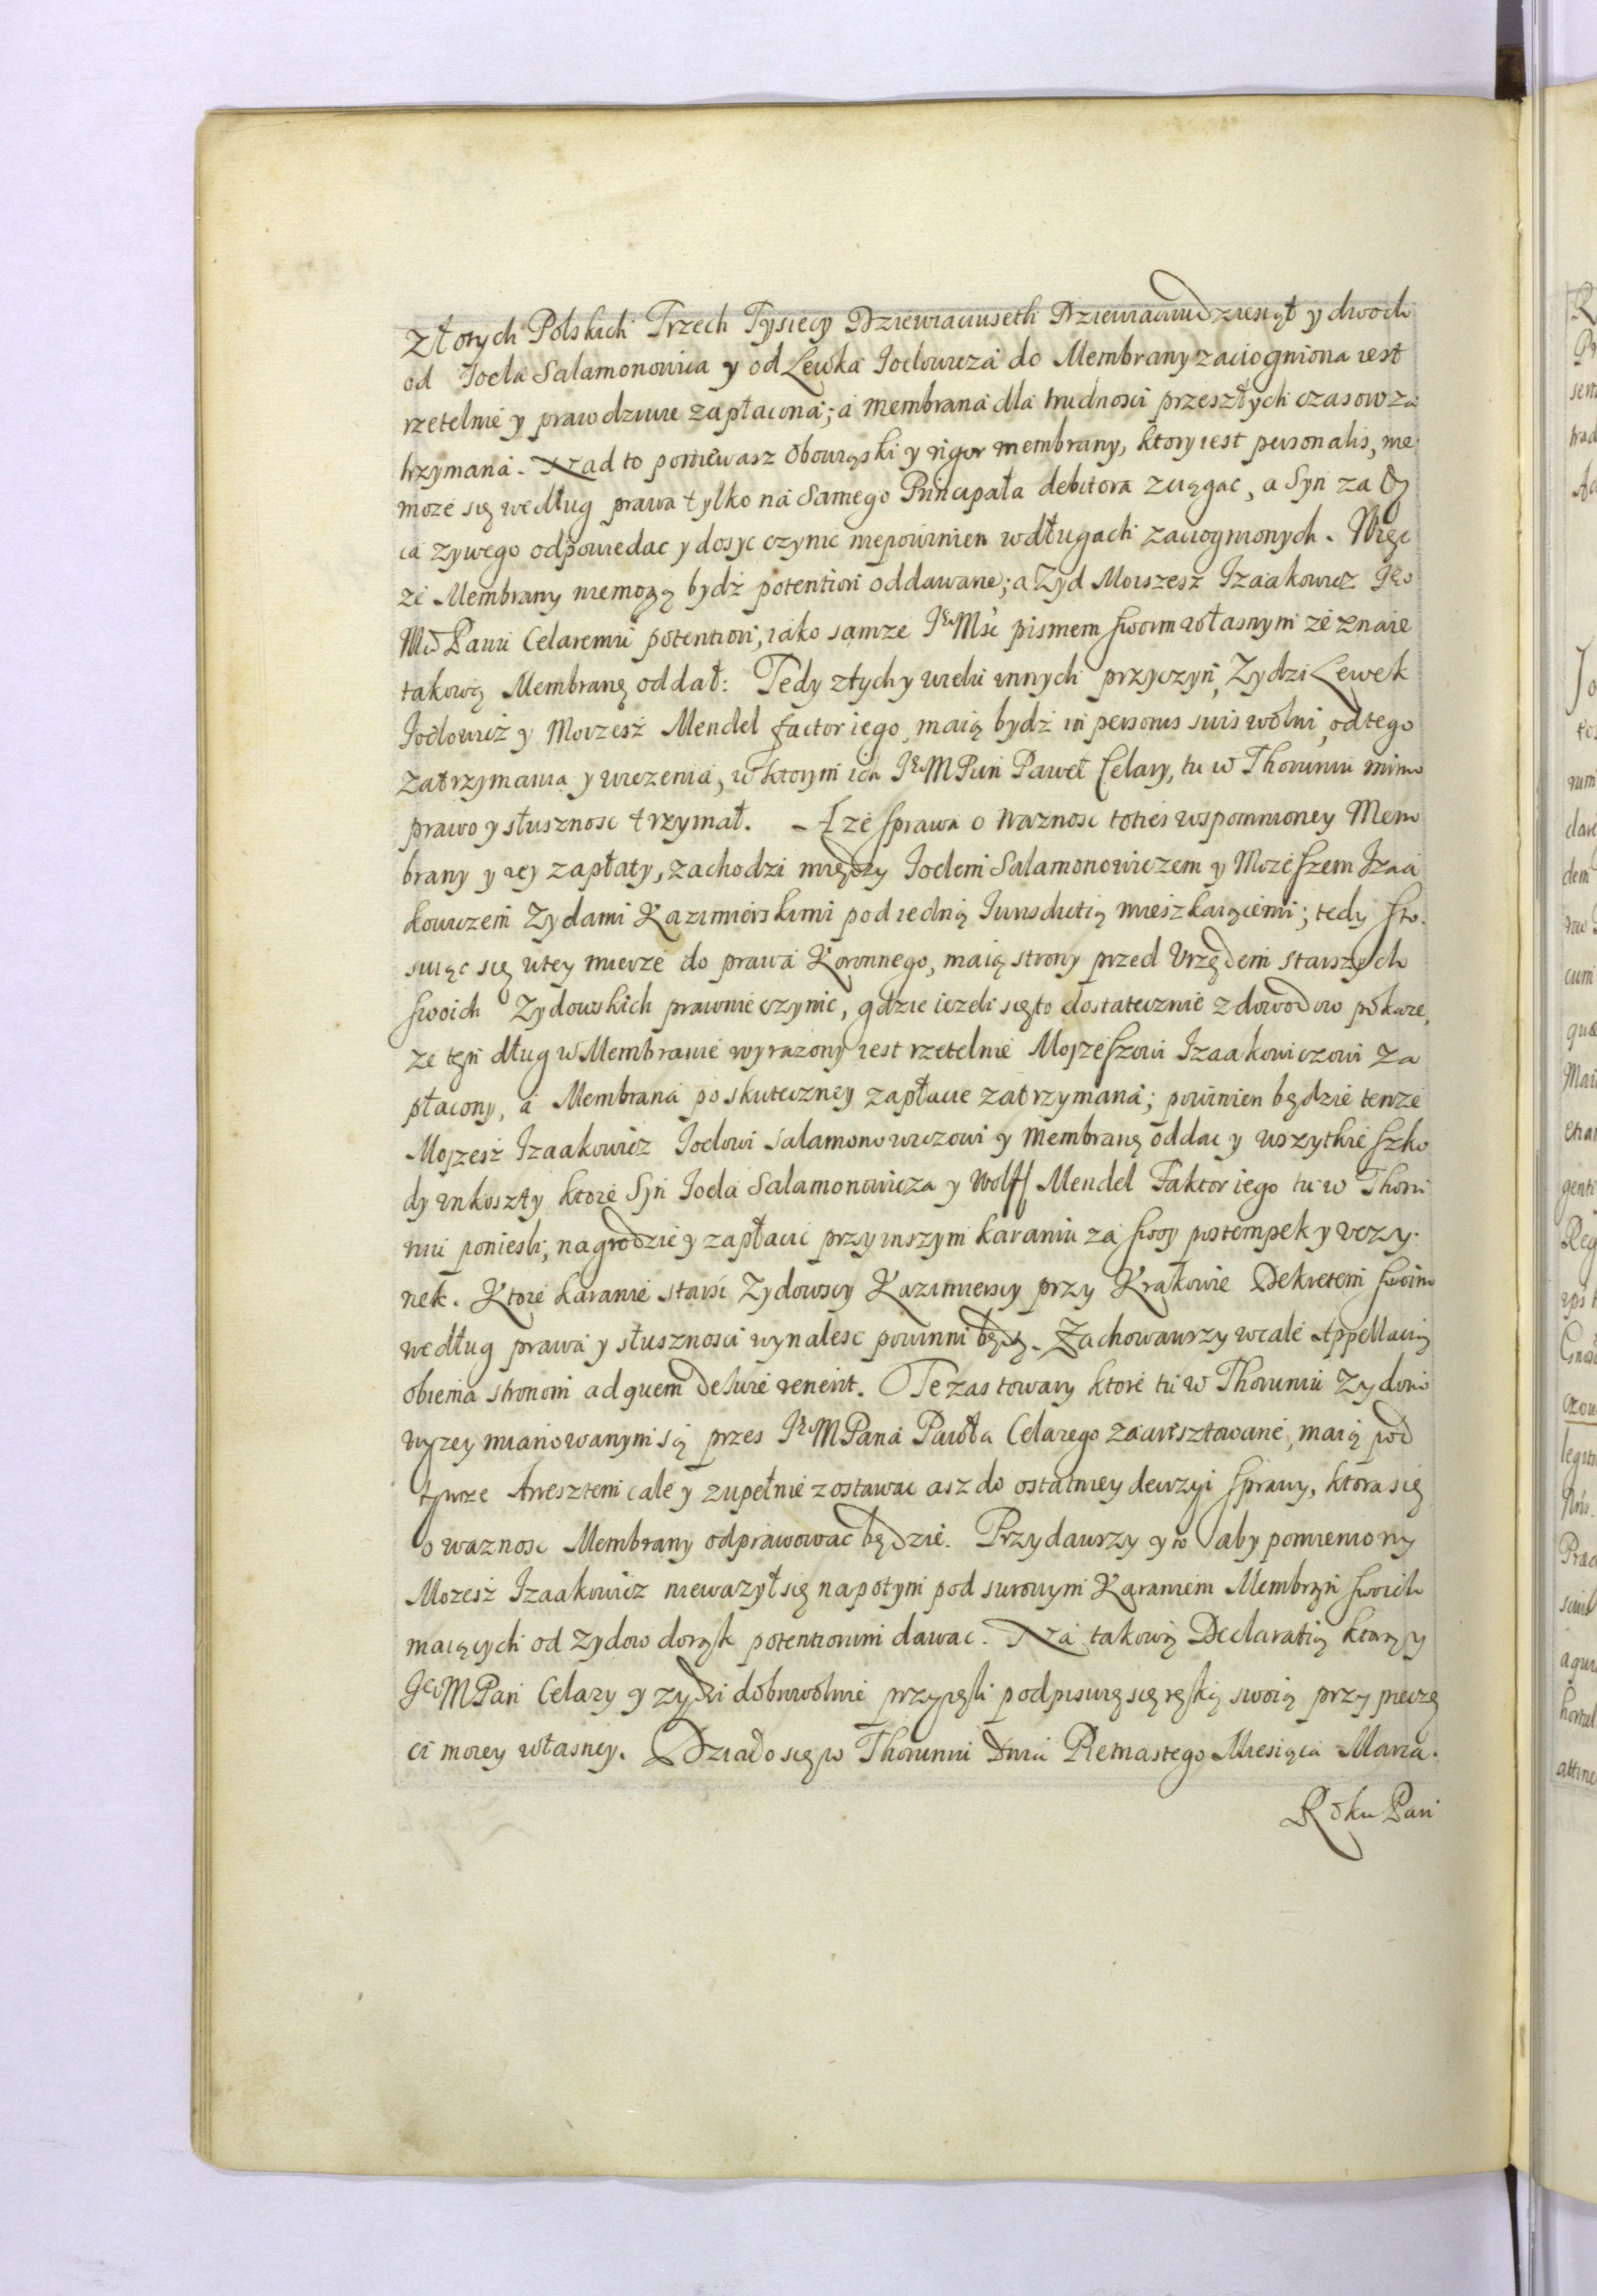 Złotych Polskich Trzech Tysięcy Dziewiaciuseth Dziewiaciudziesiąt y dwoch
od Joela Salamonowica y od Lewka Joelowicza do Membrany zaciogniona iest
rzetelnie y prawodziwie zapłacona; a membrana dla trudnosci przeszłych czasow za
trzymana. Nad to poniewasz obowiąski y rigor membrany, ktory iest personalis, nie
moze się według prawa tylko na Samego Principała debitora zciągac, a Syn za Oy
ca zywego odpowiedac y dosyc czynic niepowinien w długach zaciognionych. Więc
ze Membrany niemogą bydź potentiori oddawane; a Zyd Moiszesz Izaakowicz Jeo
Mci Panu Celaremu potentiori, iako samze JeoMsc pismem swoim własnym zeznaie
takową Membranę oddał: Tedy z tych y wielu innych przyczyn, Zydzi Lewek
Joelowicz y Moizesz Mendel factor iego, maią bydź in personis suis wolni, od tego
zatrzymania y wiezenia, w ktorym ich JeoMPan Paweł Celary, tu w Thoruniu mimo
prawo y słusznosc trzymał. A ze sprawa o wraznosc toties wspomnioney Mem
brany y iey zapłaty, zachodzi między Joelem Salamonowiczem y Mozeszem Izaa
kowiczem Zydami Kazimierskimi pod iedną Iurisdictią mieszkaiąciemi; tedy sto
suiąc się w tey mierze do prawa Koronnego, maią strony przed Vrzędem starszych
swoich Zydowskich prawnie czynic, gdzie iezeli się to dostatecznie z dowodow pokaze,
ze ten dług w Membranie wyrazony iest rzetelnie Mojzeszowi Izaakowiczowi za
płacony, a Membrana po skuteczney zapłacie zatrzymana; powinien będzie tenze
Mojzesz Izaakowicz Joelowi Salamonowiczowi y membranę oddac y wszytkie szko
dy inkoszty ktore Syn Joela Salamonowicza y Wolff Mendel Faktor iego tu w Thoru
niu poniesli; nagrodzic y zapłacic przy inszym karaniu za swoy postempek y vczy
nek. Ktore karanie starsi Zydowscy Kazimierscy przy Krakowie Dekretem swoim
według prawa y słusznosci wynalesc powinni będą. Zachowawrzy wcale Appellacią
obiema stronom ad quem de Iure venerit. Te zas towary ktore tu w Thoruniu Zydom
wyzey mianowanym są przes JeoMPana Pawła Celarego zaaresztowane, maią pod
tymze Aresztem cale y zupełnie zostawac asz do ostatniey decizyi sprawy, ktora się
o waznosc Membrany odprawowac będzie. Przydawrzy y to aby pomieniony
Mozesz Izaakowicz niewazył się napotym pod surowym Karaniem Membran swoich
maiących od zydow do rąk potentiorum dawac. Na takową Declaratią ktorą y
JeoMPan Celary y zydzi dobrowolnie przyięli podpisuię się ręką swoią przy pieczę
ci moiey własney. Działo się w Thoruniu Dnia Pietnastego Miesiąca Marca.
Roku Pań